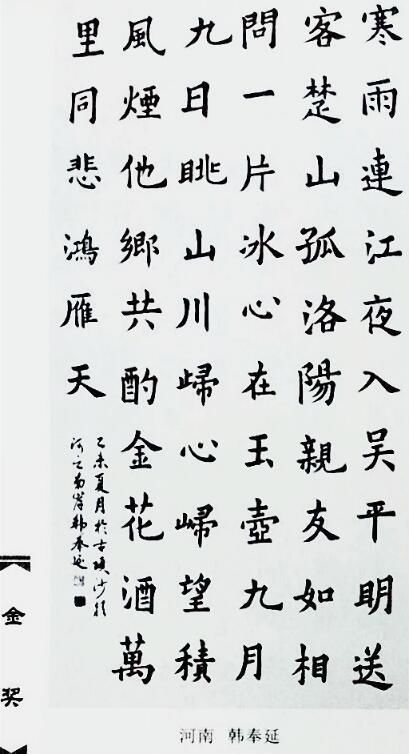 寒雨連江夜入吴平明送
客楚山孤洛陽親友如相
問一片冰心在玉壺九月
九日眺山川歸心歸望積
風煙他鄉共酌金花酒萬
里同悲鴻雁天
乙未夏月於古項沙颍
河之南岸韩奉延
金奖
河南 韩奉延